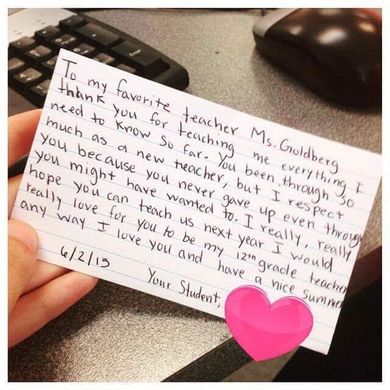 To my favorite teacher Ms. Goldberg
thank you for teaching me everything I
need to know so far. You been through so
much as a new teacher, but I respect
you because you never gave up even through
you might have wanted to. I really, really
hope you can teach us next year I would
really love for you to be my 12th grade teacher
any way I love you and have a nice summer
6/2/13
Your Student,